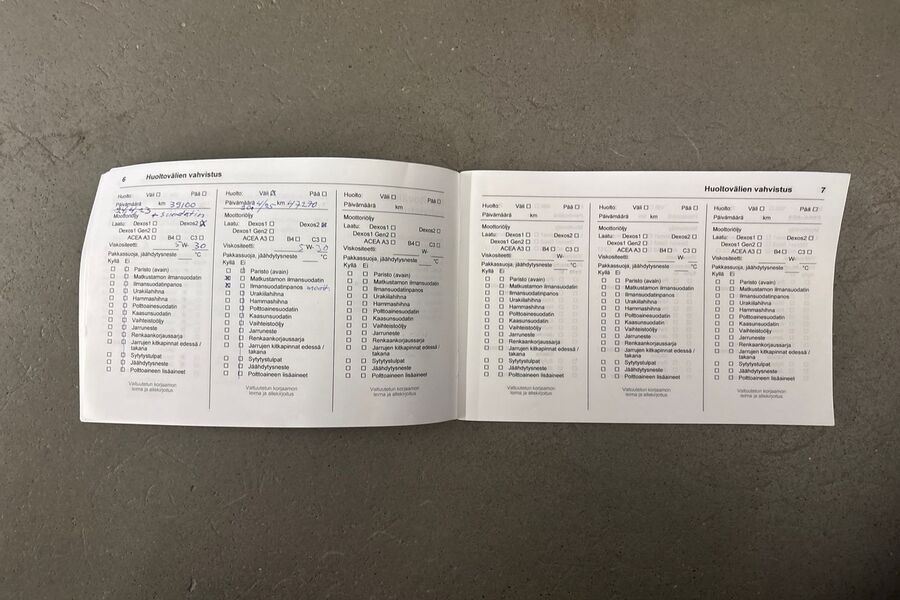 6 Huoltovälien vahvistus
Huolto: Väli ☐ Pää ☐
Päivämäärä km 39100
24.4.23 + suodatin
Moottoriöljy
Laatu: Dexos1 ☐ Dexos2 ☒
Dexos1 Gen2 ☐
ACEA A3 ☐ B4 ☐ C3 ☐
Viskositeetti: 5 W- 30
Pakkassuoja, jäähdytysneste °C
Kyllä Ei
☐ ☐ Paristo (avain)
☐ ☐ Matkustamon ilmansuodatin
☐ ☐ Ilmansuodatinpanos
☐ ☐ Urakilahihna
☐ ☐ Hammashihna
☐ ☐ Polttoainesuodatin
☐ ☐ Kaasunsuodatin
☐ ☐ Vaihteistoöljy
☐ ☐ Jarruneste
☐ ☐ Renkaankorjaussarja
☐ ☐ Jarrujen kitkapinnat edessä /
takana
☐ ☐ Sytytystulpat
☐ ☐ Jäähdytysneste
☐ ☐ Polttoaineen lisäaineet
Valtuutetun korjaamon
leima ja allekirjoitus
Huolto: Väli ☒ Pää ☐
Päivämäärä 4/25 km 47290
Moottoriöljy
Laatu: Dexos1 ☐ Dexos2 ☒
Dexos1 Gen2 ☐
ACEA A3 ☐ B4 ☐ C3 ☐
Viskositeetti: 5 W- 30
Pakkassuoja, jäähdytysneste °C
Kyllä Ei
☐ ☐ Paristo (avain)
☒ ☐ Matkustamon ilmansuodatin
☒ ☐ Ilmansuodatinpanos
☐ ☐ Urakilahihna
☐ ☐ Hammashihna
☐ ☐ Polttoainesuodatin
☐ ☐ Kaasunsuodatin
☐ ☐ Vaihteistoöljy
☐ ☐ Jarruneste
☐ ☐ Renkaankorjaussarja
☐ ☐ Jarrujen kitkapinnat edessä /
takana
☐ ☐ Sytytystulpat
☐ ☐ Jäähdytysneste
☐ ☐ Polttoaineen lisäaineet
Valtuutetun korjaamon
leima ja allekirjoitus
Huolto: Väli ☐ Pää ☐
Päivämäärä km
Moottoriöljy
Laatu: Dexos1 ☐ Dexos2 ☐
Dexos1 Gen2 ☐
ACEA A3 ☐ B4 ☐ C3 ☐
Viskositeetti: W-
Pakkassuoja, jäähdytysneste °C
Kyllä Ei
☐ ☐ Paristo (avain)
☐ ☐ Matkustamon ilmansuodatin
☐ ☐ Ilmansuodatinpanos
☐ ☐ Urakilahihna
☐ ☐ Hammashihna
☐ ☐ Polttoainesuodatin
☐ ☐ Kaasunsuodatin
☐ ☐ Vaihteistoöljy
☐ ☐ Jarruneste
☐ ☐ Renkaankorjaussarja
☐ ☐ Jarrujen kitkapinnat edessä /
takana
☐ ☐ Sytytystulpat
☐ ☐ Jäähdytysneste
☐ ☐ Polttoaineen lisäaineet
Valtuutetun korjaamon
leima ja allekirjoitus
Huoltovälien vahvistus 7
Huolto: Väli ☐ Pää ☐
Päivämäärä km
Moottoriöljy
Laatu: Dexos1 ☐ Dexos2 ☐
Dexos1 Gen2 ☐
ACEA A3 ☐ B4 ☐ C3 ☐
Viskositeetti: W-
Pakkassuoja, jäähdytysneste °C
Kyllä Ei
☐ ☐ Paristo (avain)
☐ ☐ Matkustamon ilmansuodatin
☐ ☐ Ilmansuodatinpanos
☐ ☐ Urakilahihna
☐ ☐ Hammashihna
☐ ☐ Polttoainesuodatin
☐ ☐ Kaasunsuodatin
☐ ☐ Vaihteistoöljy
☐ ☐ Jarruneste
☐ ☐ Renkaankorjaussarja
☐ ☐ Jarrujen kitkapinnat edessä /
takana
☐ ☐ Sytytystulpat
☐ ☐ Jäähdytysneste
☐ ☐ Polttoaineen lisäaineet
Valtuutetun korjaamon
leima ja allekirjoitus
Huolto: Väli ☐ Pää ☐
Päivämäärä km
Moottoriöljy
Laatu: Dexos1 ☐ Dexos2 ☐
Dexos1 Gen2 ☐
ACEA A3 ☐ B4 ☐ C3 ☐
Viskositeetti: W-
Pakkassuoja, jäähdytysneste °C
Kyllä Ei
☐ ☐ Paristo (avain)
☐ ☐ Matkustamon ilmansuodatin
☐ ☐ Ilmansuodatinpanos
☐ ☐ Urakilahihna
☐ ☐ Hammashihna
☐ ☐ Polttoainesuodatin
☐ ☐ Kaasunsuodatin
☐ ☐ Vaihteistoöljy
☐ ☐ Jarruneste
☐ ☐ Renkaankorjaussarja
☐ ☐ Jarrujen kitkapinnat edessä /
takana
☐ ☐ Sytytystulpat
☐ ☐ Jäähdytysneste
☐ ☐ Polttoaineen lisäaineet
Valtuutetun korjaamon
leima ja allekirjoitus
Huolto: Väli ☐ Pää ☐
Päivämäärä km
Moottoriöljy
Laatu: Dexos1 ☐ Dexos2 ☐
Dexos1 Gen2 ☐
ACEA A3 ☐ B4 ☐ C3 ☐
Viskositeetti: W-
Pakkassuoja, jäähdytysneste °C
Kyllä Ei
☐ ☐ Paristo (avain)
☐ ☐ Matkustamon ilmansuodatin
☐ ☐ Ilmansuodatinpanos
☐ ☐ Urakilahihna
☐ ☐ Hammashihna
☐ ☐ Polttoainesuodatin
☐ ☐ Kaasunsuodatin
☐ ☐ Vaihteistoöljy
☐ ☐ Jarruneste
☐ ☐ Renkaankorjaussarja
☐ ☐ Jarrujen kitkapinnat edessä /
takana
☐ ☐ Sytytystulpat
☐ ☐ Jäähdytysneste
☐ ☐ Polttoaineen lisäaineet
Valtuutetun korjaamon
leima ja allekirjoitus